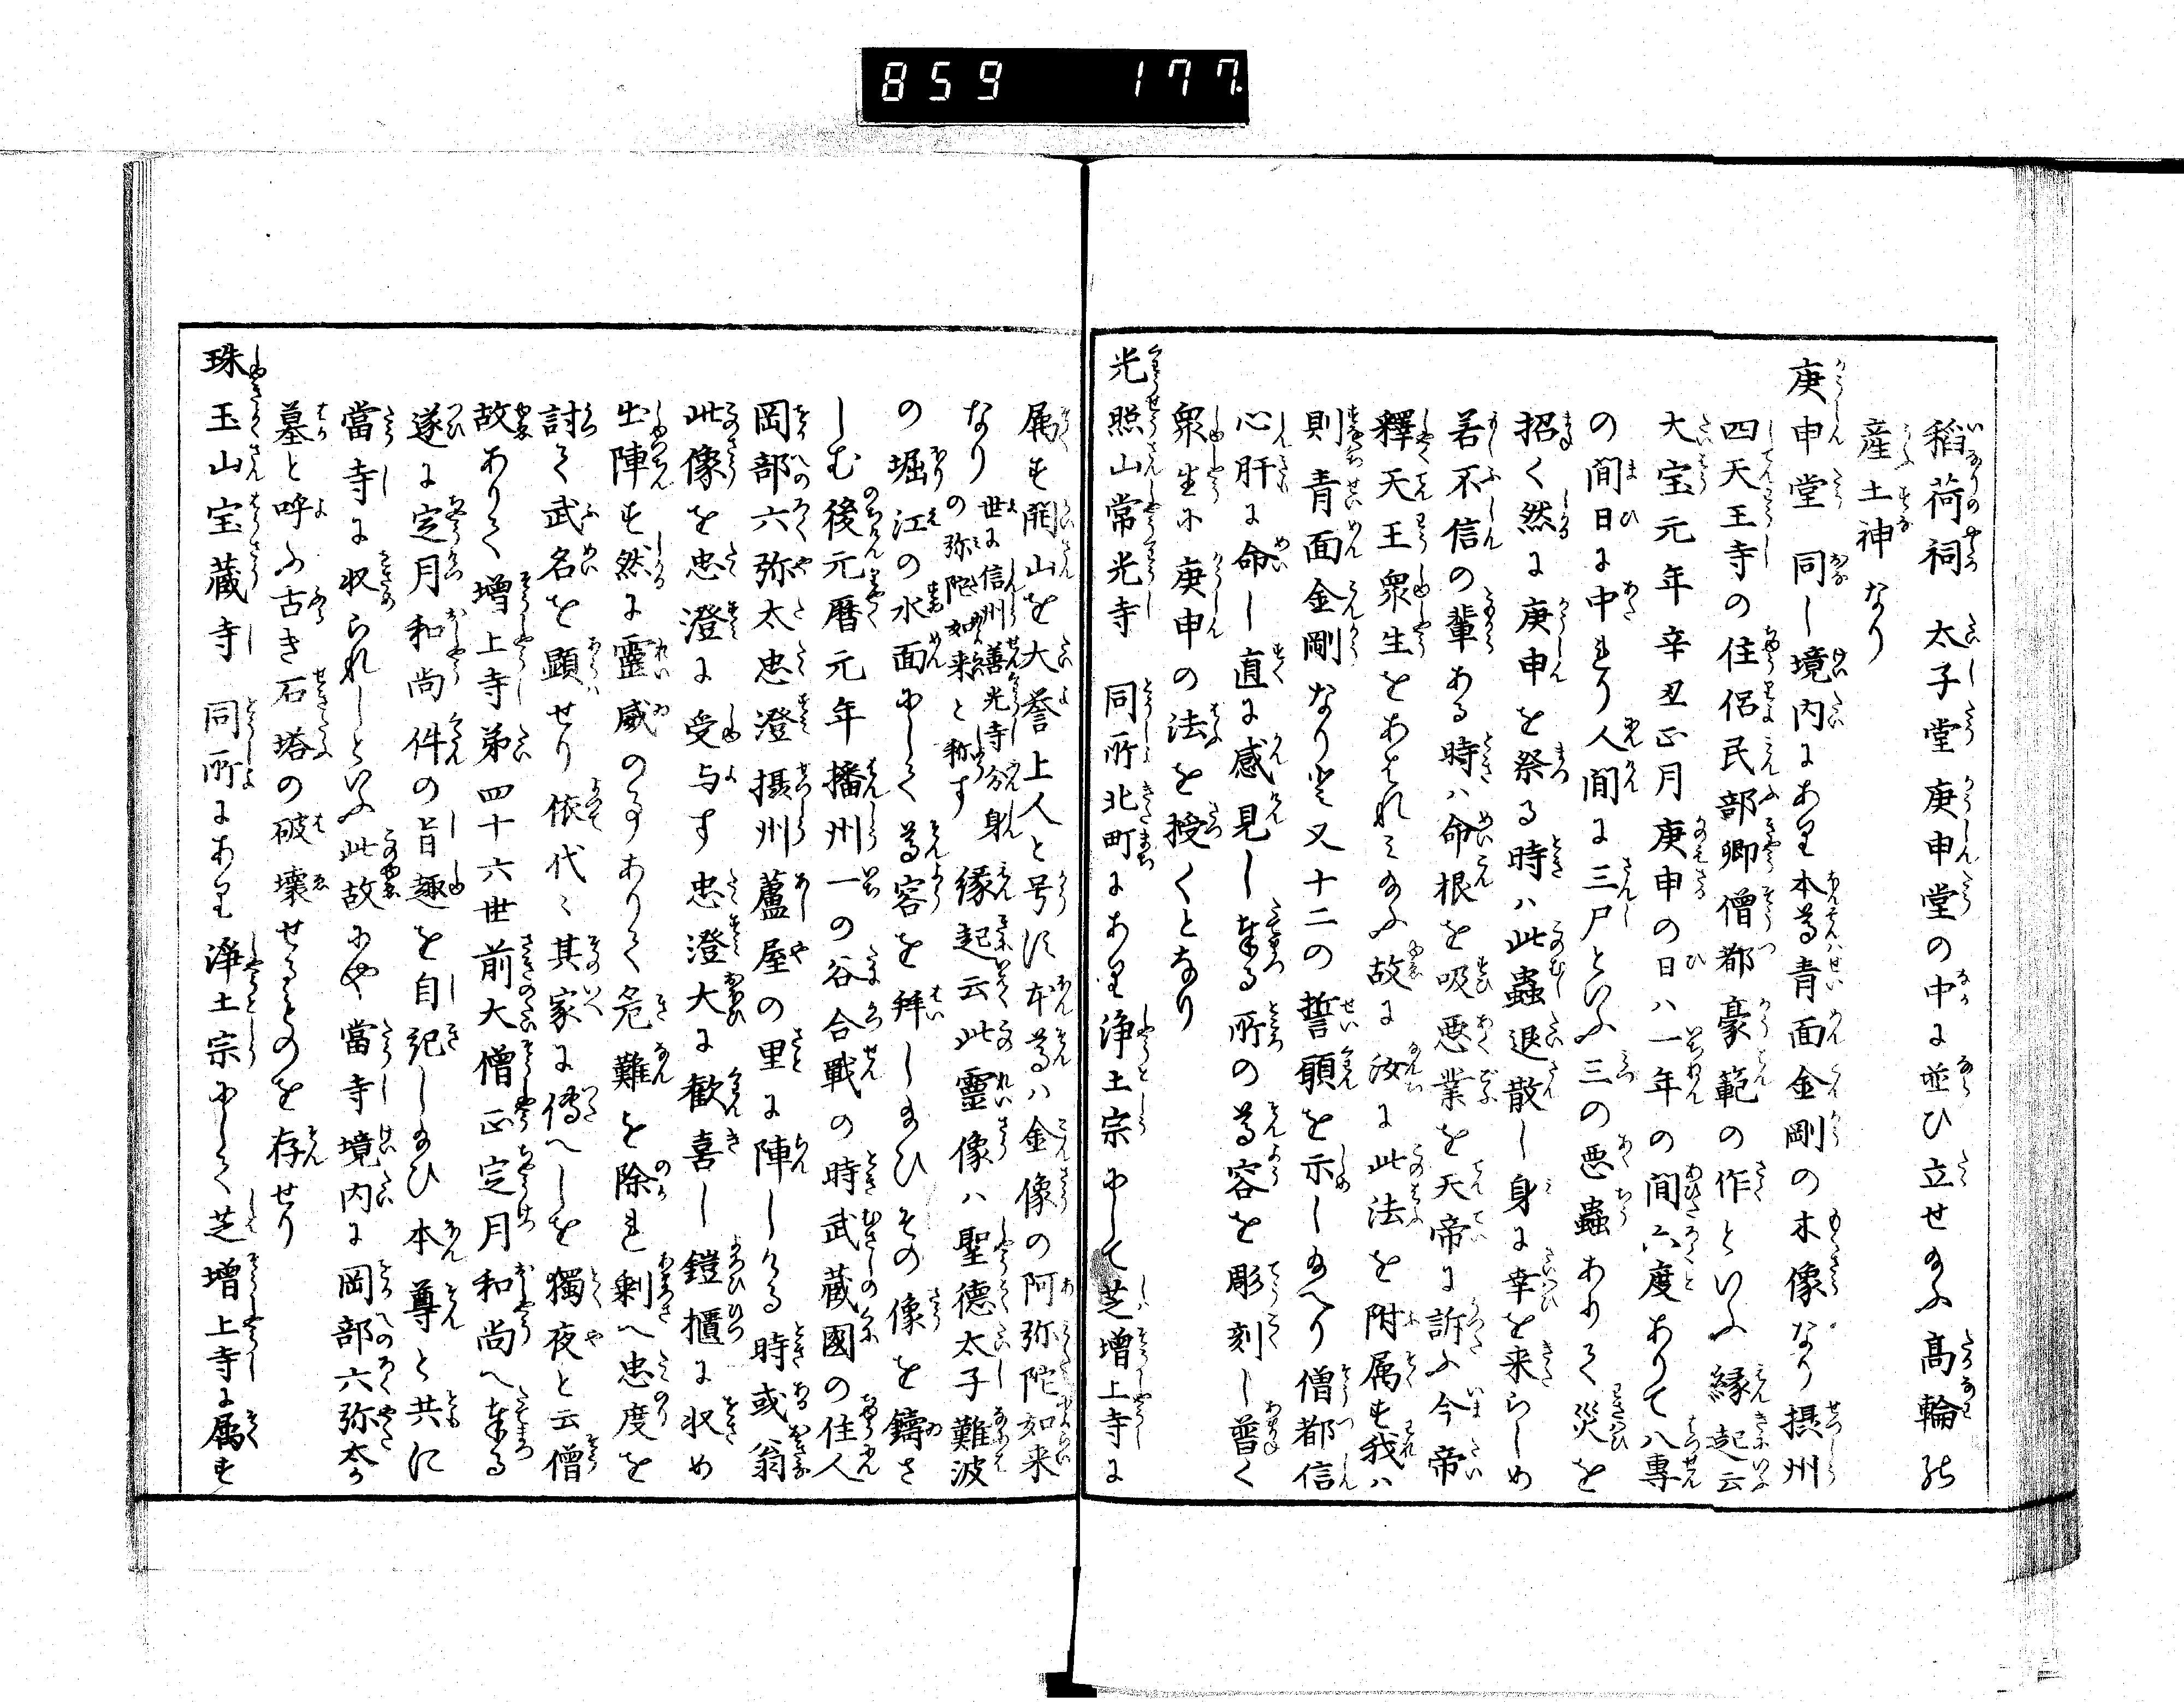 859 177
稲荷祠 太子堂 庚申堂の中に並ひ立せ給ふ高輪の
産土神なり
庚申堂 同し境内にあり本尊青面金剛の木像なり摂州
四天王寺の住侶民部卿僧都豪範の作といふ縁起云
大宝元年辛丑正月庚申の日ハ一年の間六度ありて八專
の間日に中れり人間に三尸といふ三の悪蟲ありて災を
招く然に庚申を祭る時ハ此蟲退散し身に幸を来らしめ
若不信の輩ある時ハ命根を吸悪業を天帝に訴ふ今帝
釋天王衆生をあはれミ給ふ故に汝に此法を附属す我ハ
則青面金剛なりと又十二の誓願を示し給へり僧都信
心肝に命し直に感見し奉る所の尊容を彫刻し普く
衆生に庚申の法を授くとなり
光照山常光寺 同所北町にあり浄土宗にして芝増上寺に
属す開山を大誉上人と号す本尊ハ金像の阿弥陀如来
なり 世に信州善光寺分身の弥陀如来と称す 縁起云此靈像ハ聖徳太子難波
の堀江の水面にして尊容を拜し給ひその像を鑄さ
しむ後元暦元年播州一の谷合戰の時武蔵國の住人
岡部六弥太忠澄摂州蘆屋の里に陣しける時或翁
此像を忠澄に受与す忠澄大に歓喜し鎧櫃に収め
出陣す然に靈威の事ありて危難を除れ剰へ忠度を
討て武名を顕せり依代々其家に傳へしを獨夜と云僧
故ありて増上寺弟四十六世前大僧正定月和尚へ奉る
遂に定月和尚件の旨趣を自記し給ひ本尊と共に
當寺に収られしといふ此故にや當寺境内に岡部六弥太か
墓と呼ふ古き石塔の破壊せるものを存せり
珠玉山宝蔵寺 同所にあり浄土宗にして芝増上寺に属す